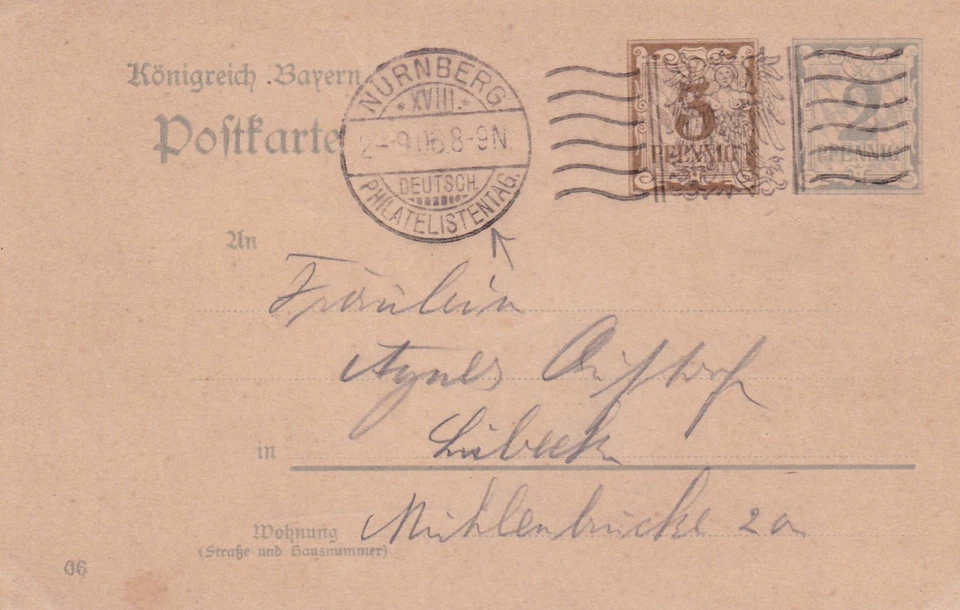 Königreich Bayern
Postkarte
NÜRNBERG
* XVIII. *
2-9.06.8-9N.
DEUTSCH.
PHILATELISTENTAG.
3
PFENNIG
2
PFENNIG
An
Fräulein
Agnes
in Lübeck
Wohnung Mühlenbrücke 2a
(Straße und Hausnummer)
06